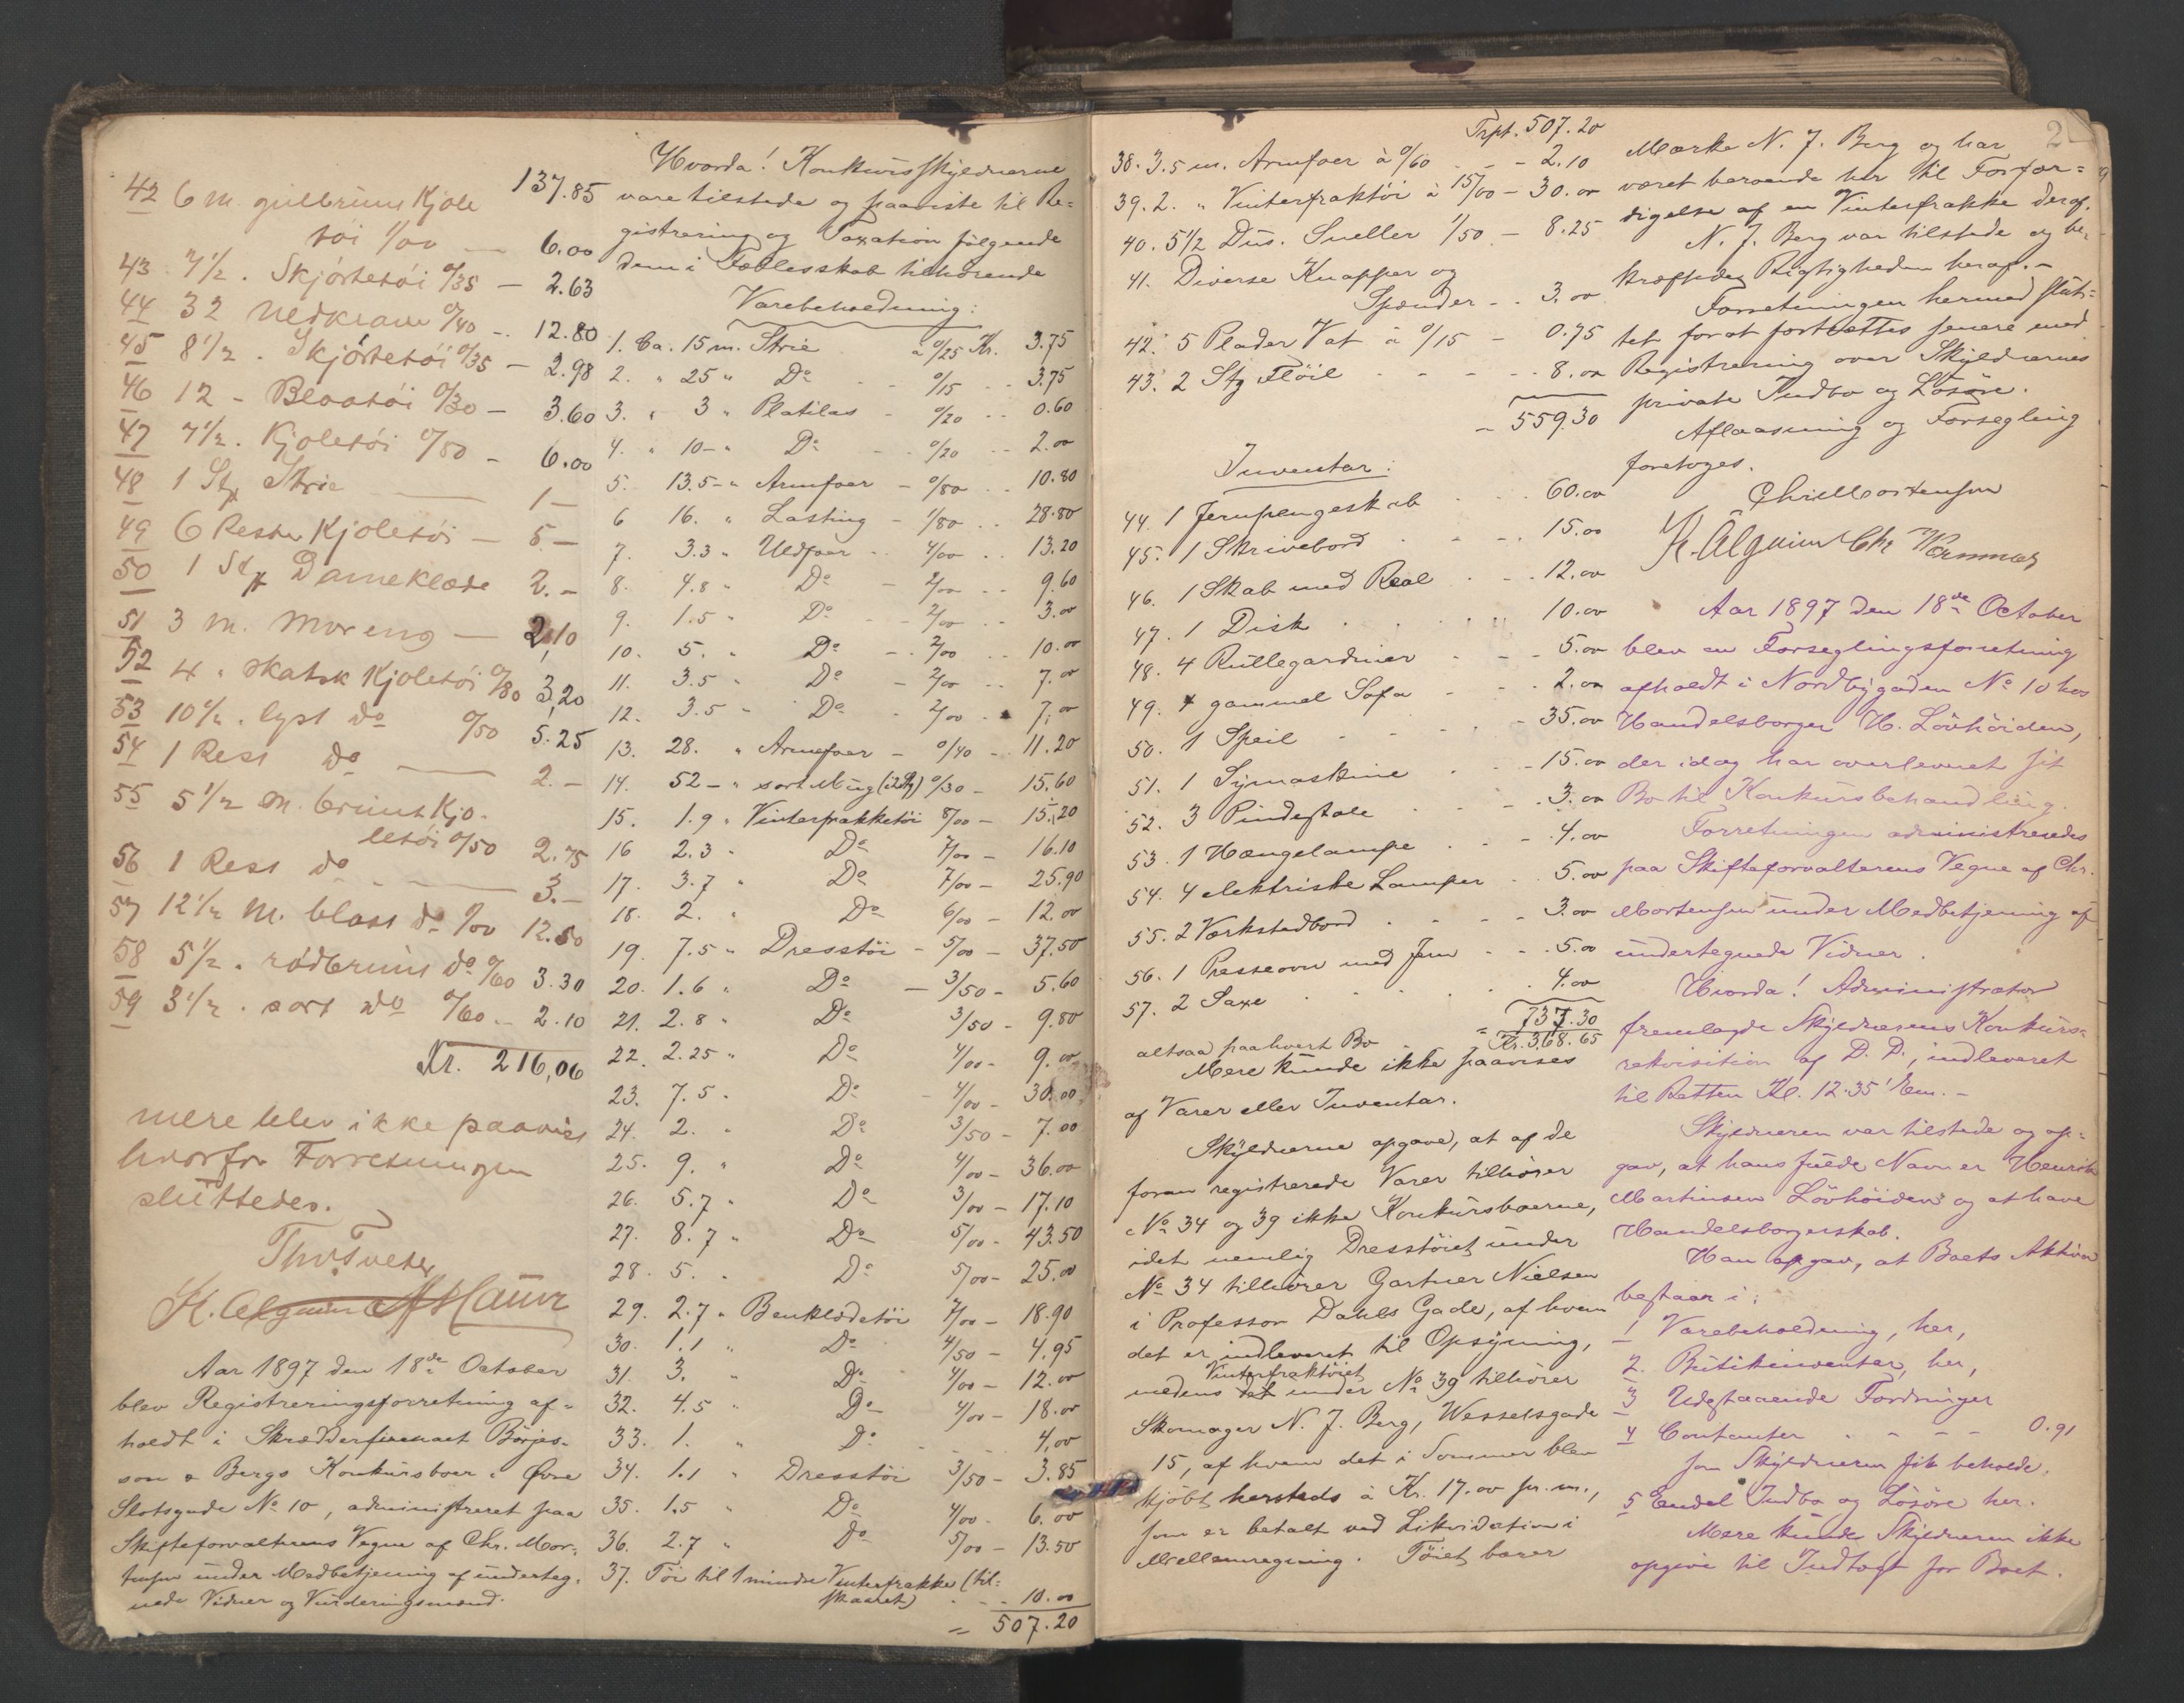 137.85
42 6 m. gulbruns Kjole
tøi 1/00 — 6.00
43 7½ . Skjörtetøi 0/35 — 2.63
44 32 Uldkram 0/40 - . 12.80
45 8½ . Skjörtetøi 0/35 — 2.98
46 12 - Blaatøi 0/30 — 3.60
47 7½ . Kjoletøi 0/80 - 6.00
48 1 St. Strie — 1 —
49 6 Rester Kjoletøi — 5 —
50 1 St. Dameklæde 2. -
51 3 m. Moreng — 2,10
52 4 " skotsk Kjoletøi 0/80 3,20
53 10½ . lyst do 0/50 5.25
54 1 Rest do — 2. -
55 5½ m. bruunt Kjo-
letøi 0/50 2.75
56 1 Rest do — 3. -
57 12½ m. blaat do 1/00 12.50
58 5½ . rödbruns do 0/60 3.30
59 3½ . sort do 0/60 .. 2.10
Kr. 216,06
mere blev ikke paavist
hvorfor Forretningen
sluttedes.
Ths Tveter
K. Algauer
Aar 1897 den 18de October
blev Registreringsforretning af-
holdt i Skrædderfirmaet Börjes-
son & Bergs Konkursboer i Övre
Slotsgade No 10, administreret paa
Skifteforvalterens Vegne af Chr. Mor-
tensen under Medbetjening af underteg-
nede Vidner og Vurderingsmænd.
Hvorda! Konkursskyldnerne
vare tilstede og paaviste til Re-
gistrering og Taxation følgende
dem i Fællesskab tilhørende
Varebeholdning:
1. Ca. 15 m. Strie à 0/25 Kr. 3.75
2. " 25 " Do - - 0/15 . . 3.75
3. " 3 " Platilas - 0/20 . . 0.60
4. " 10 - " Do - - 0/20 . . 2.00
5. 13.5 - " Armfoer - 0/80 . . 10.80
6 16. " Lasting - 1/80 . . 28.80
7. 3.3 " Uldfoer . . 4/00 . . 13.20
8. 4.8 " Do - 2/00 . . 9.60
9. 1.5 " Do - - 2/00 . . 3.00
10. 5. " Do - . 2/00 . . 10.00
11. 3.5 " Do - 2/00 . . 7.00
12. 3.5 " Do . 2/00 . . 7,00
13. 28. " Armfoer - 0/40 - . 11.20
14. 52 - " sort Mug 0/30 - 15.60
15. 1.9 " Vinterfrakketøi 8/00 - 15.20
16 2.3 " Do 7/00 - 16.10
17. 3.7 " Do 7/00 - 25.90
18. 2. " Do 6/00 - 12.00
19. 7.5 " Dresstöi - 5/00 - 37.50
20. 1.6 " Do — 3/50 - 5.60
21. 2.8 " Do 3/50 - 9.80
22. 2.25 " Do 4/00 - 9.00
23. 7.5 " Do - 4/00 - 30.00
24. 2. " Do 3/50 - 7.00
25. 9. " Do 4/00 - 36.00
26. 5.7 " Do 3/00 - 17.10
27. 8.7 " Do 5/00 - 43.50
28. 5. " Do 5/00 - 25.00
29. 2.7 " Benklædetøi 7/00 - 18.90
30. 1.1 " Do 4/50 - 4.95
31. 3. " Do 4/00 - 12.00
32. 4.5 " Do 4/00 - 18.00
33. 1. " Do - . . . 4,00
34. 1.1 " Dresstöi 3/50 - 3.85
35. 1.5 " Do 4/00 - 6.00
36. 2.7 " Do 5/00 - 13.50
37. Töi til 1 mindre Vinterfrakke (til-
skaaret) - - - 10.00
= 507.20
Trpt. 507.20
38. 3.5 m. Armfoer à 0/60 - - - 2.10
39. 2. " Vinterfraktöi à 15/00 - 30.00
40. 5½ Dus. Sneller 1/50 - 8.25
41. Diverse Knapper og
Spænder - . 3.00
42. 5 Plader Vat à 0/15 - 0.75
43. 2 Stg Flöil - - - - 8.00
= 559.30
Inventar:
44. 1 Jernpengeskab . . . 60.00
45. 1 Skrivebord . . . 15.00
46. 1 Skab med Real . . . 12.00
47. 1 Disk . . . . 10.00
48. 4 Rullegardiner - - - 5.00
49. 1 gammel Sofa - - - 2.00
50. 1 Speil . . . . 35.00
51. 1 Symaskine . . . 15.00
52. 3 Pindestole . . . 3.00
53. 1 Hængelampe . . . 4.00
54. 4 elektriske Lamper . . 5.00
55. 2 Værkstedbord . . . 3.00
56. 1 Presseovn med Jern - - . 5.00
57. 2 Saxe . . . . 4.00
= 737.30
altsaa paa hvert Bo - Kr. 368.65
Mere kunde ikke paavises
af Varer eller Inventar.
Skyldnerne opgave, at af de
foran registrerede Varer tilhører
No 34 og 39 ikke Konkursboerne,
idet nemlig Dresstöiet under
No 34 tilhører Gartner Nielsen
i Professor Dahls Gade, af hvem
det er indleveret til Opsyning,
Vinterfraktöiet
medens det under No 39 tilhører
Skomager N. J. Berg, Wesselsgade
15, af hvem det i Sommer blev
kjöbt hersteds à Kr. 17.00 pr. m.,
som er betalt ved Likvidation i
Mellemregning. Töiet bærer
2
Mærke N. J. Berg og har
været beroende her til Forfær-
digelse af en Vinterfrakke deraf.
N. J. Berg var tilstede og be-
kræftede Rigtigheden heraf. -
Forretningen hermed slut-
tet forat fortsættes senere med
Registrering over Skyldnernes
private Indbo og Lösöre.
Aflaasning og Forsegling
foretoges.
Chr Mortensen
K. Algauer Chr
Aar 1897 den 18de October
blev en Forseglingsforretning
afholdt i Nordbygaden No 10 hos
Handelsborger H. Lövhöiden,
der idag har overleveret sit
Bo til Konkursbehandling.
Forretningen administreredes
paa Skifteforvalterens Vegne af Chr.
Mortensen under Medbetjening af
undertegnede Vidner.
Hvorda! Administrator
fremlagde Skyldnerens Konkurs-
rekvisition af D. D., indleveret
til Retten Kl. 12.35' Em. -
Skyldneren var tilstede og op-
gav, at hans fulde Navn er Henrik
Martinsen Lövhöiden og at have
Handelsborgerskab.
Han opgav, at Boets Aktiva
bestaar i:
1 Varebeholdning, her,
2. Butikinventar, her,
3 Udestaaende Fordringer
4 Contanter . - - - 0.91
som Skyldneren fik beholde.
5 Endel Indbo og Lösöre her.
Mere kunde Skyldneren ikke
opgive til Indtægt for Boet.